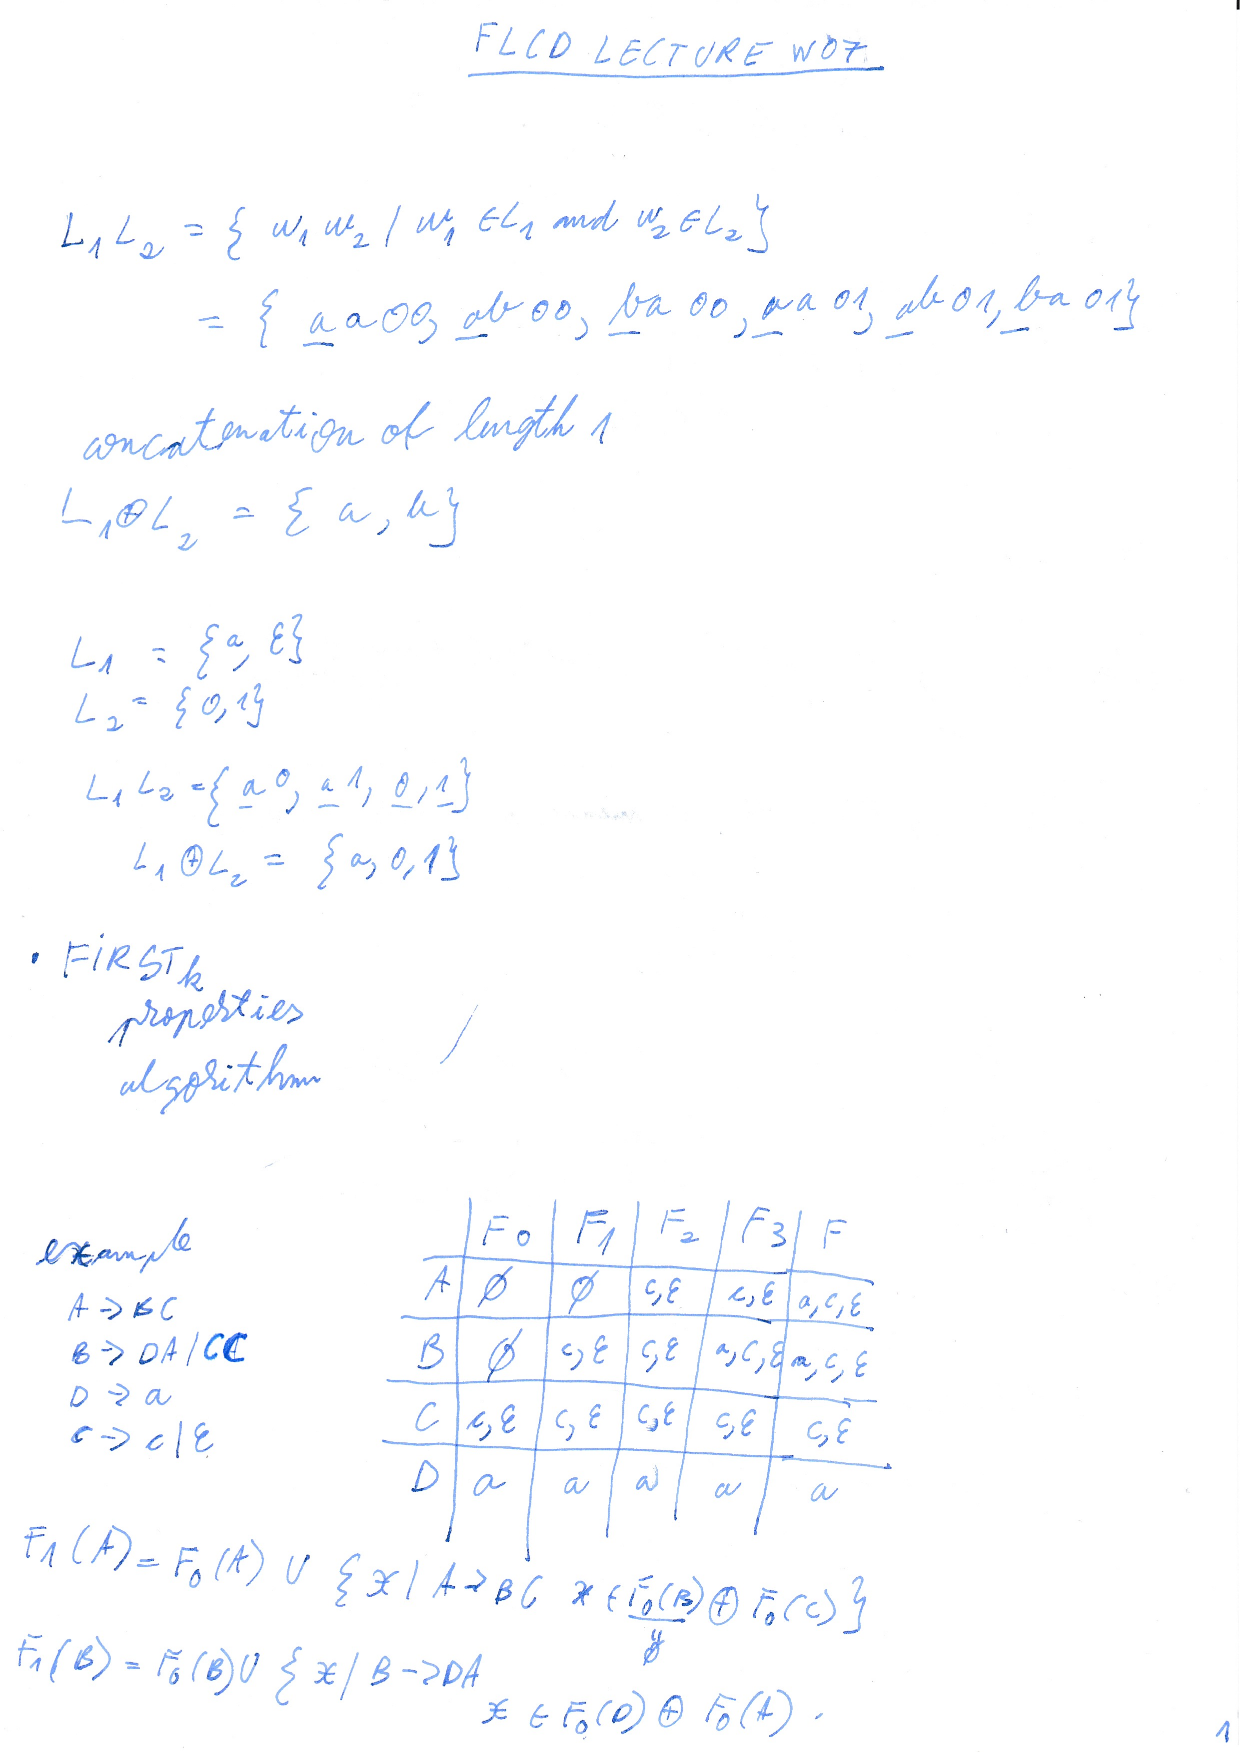 FLCD LECTURE W07
L₁L₂ = { w₁w₂ / w₁ ∈ L₁ and w₂ ∈ L₂}
= { aa00, ab00, ba00, aa01, ab01, ba01}
concatenation of length 1
L₁⊕L₂ = { a, b}
L₁ = {a, ε}
L₂ = {0,1}
L₁L₂ = { a0, a1, 0, 1}
L₁⊕L₂ = {a, 0, 1}
• FiRSTk
properties
algorithm
example
A -> BC
B -> DA / CC
D -> a
C -> c | ε
F₀ F₁ F₂ F₃ F
A ∅ ∅ c,ε c,ε a,c,ε
B ∅ c,ε c,ε a,c,ε a,c,ε
C c,ε c,ε c,ε c,ε c,ε
D a a a a a
F₁(A) = F₀(A) ∪ { x | A -> BC x ∈ F₀(B) ⊕ F₀(C)}
∅
F₁(B) = F₀(B) ∪ { x / B -> DA
x ∈ F₀(D) ⊕ F₀(A).
1